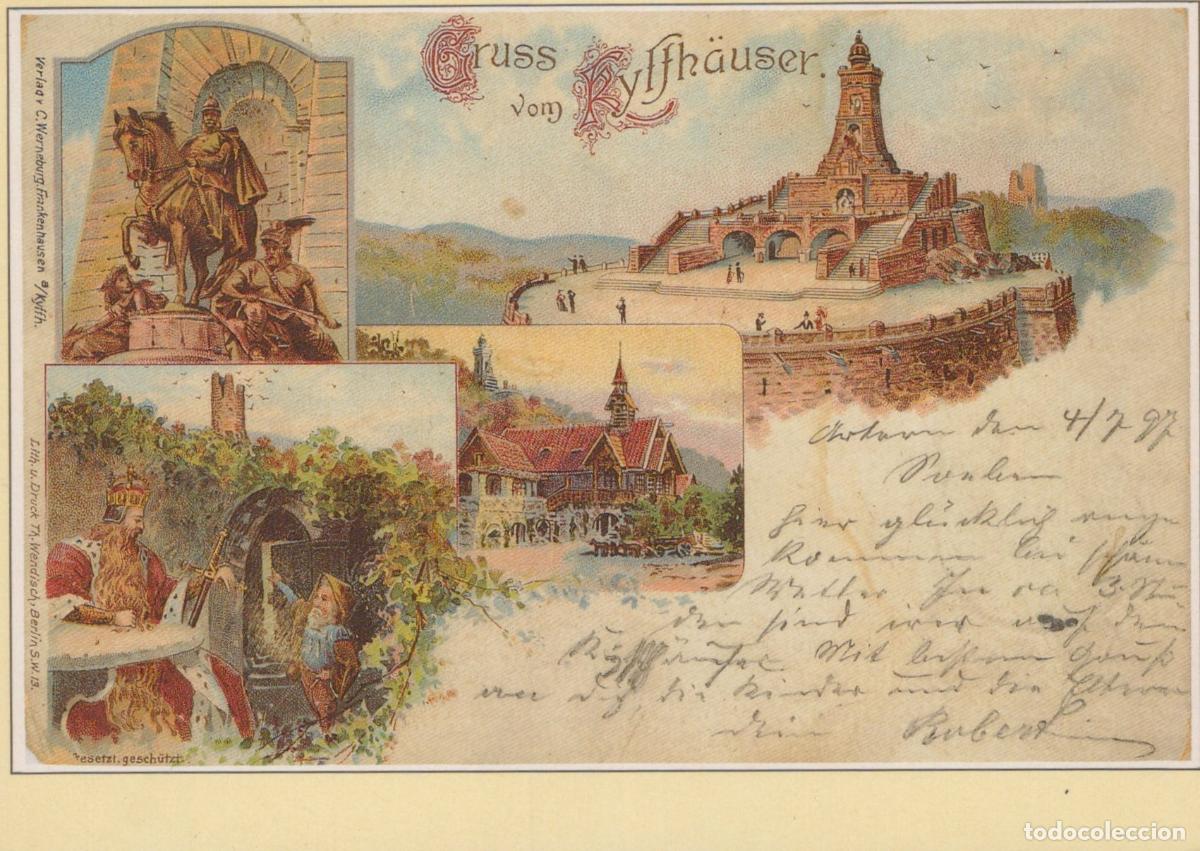 Gruss
vom Kyffhäuser.
Verlag v. C. Werneburg, Frankenhausen a/Kyffh.
Lith. u. Druck Th. Wendisch, Berlin S.W. 13.
Gesetzl. geschützt.
Artern den 4/7 97
Soeben
hier glücklich ange
kommen bei schönem
Wetter In ca 3 Stun
den sind wir auf dem
Kyffhäuser Mit bestem Gruß
an dich, die Kinder und die Eltern
dein Robert
todocoleccion